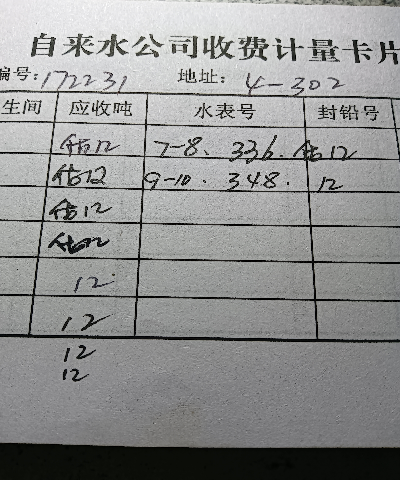 自来水公司收费计量卡片
编号:172231 地址: 4-302
生间 应收吨 水表号 封铅号
估12 7-8. 336. 估12
估12 9-10. 348. 12
估12
估12
12
12
12
12